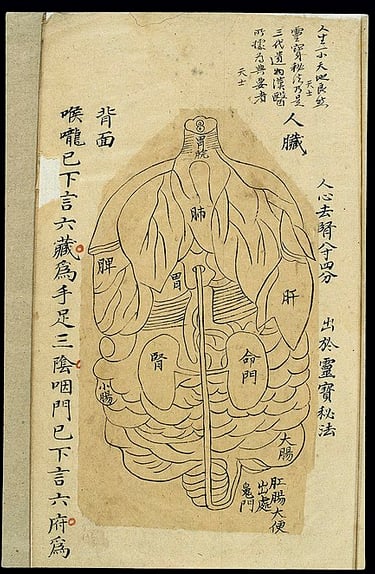 小天地良然
天士
靈寶秘法乃是
三代遺物漢醫
所據為典要者
天士
人臟
人心去腎八寸四分
出於靈寶秘法
胃脘
肺
肝
胃
脾
命門
腎
小腸
大腸
肛腸大便
出處
鬼門
背面
喉嚨已下言六藏為手足三陰咽門已下言六府為